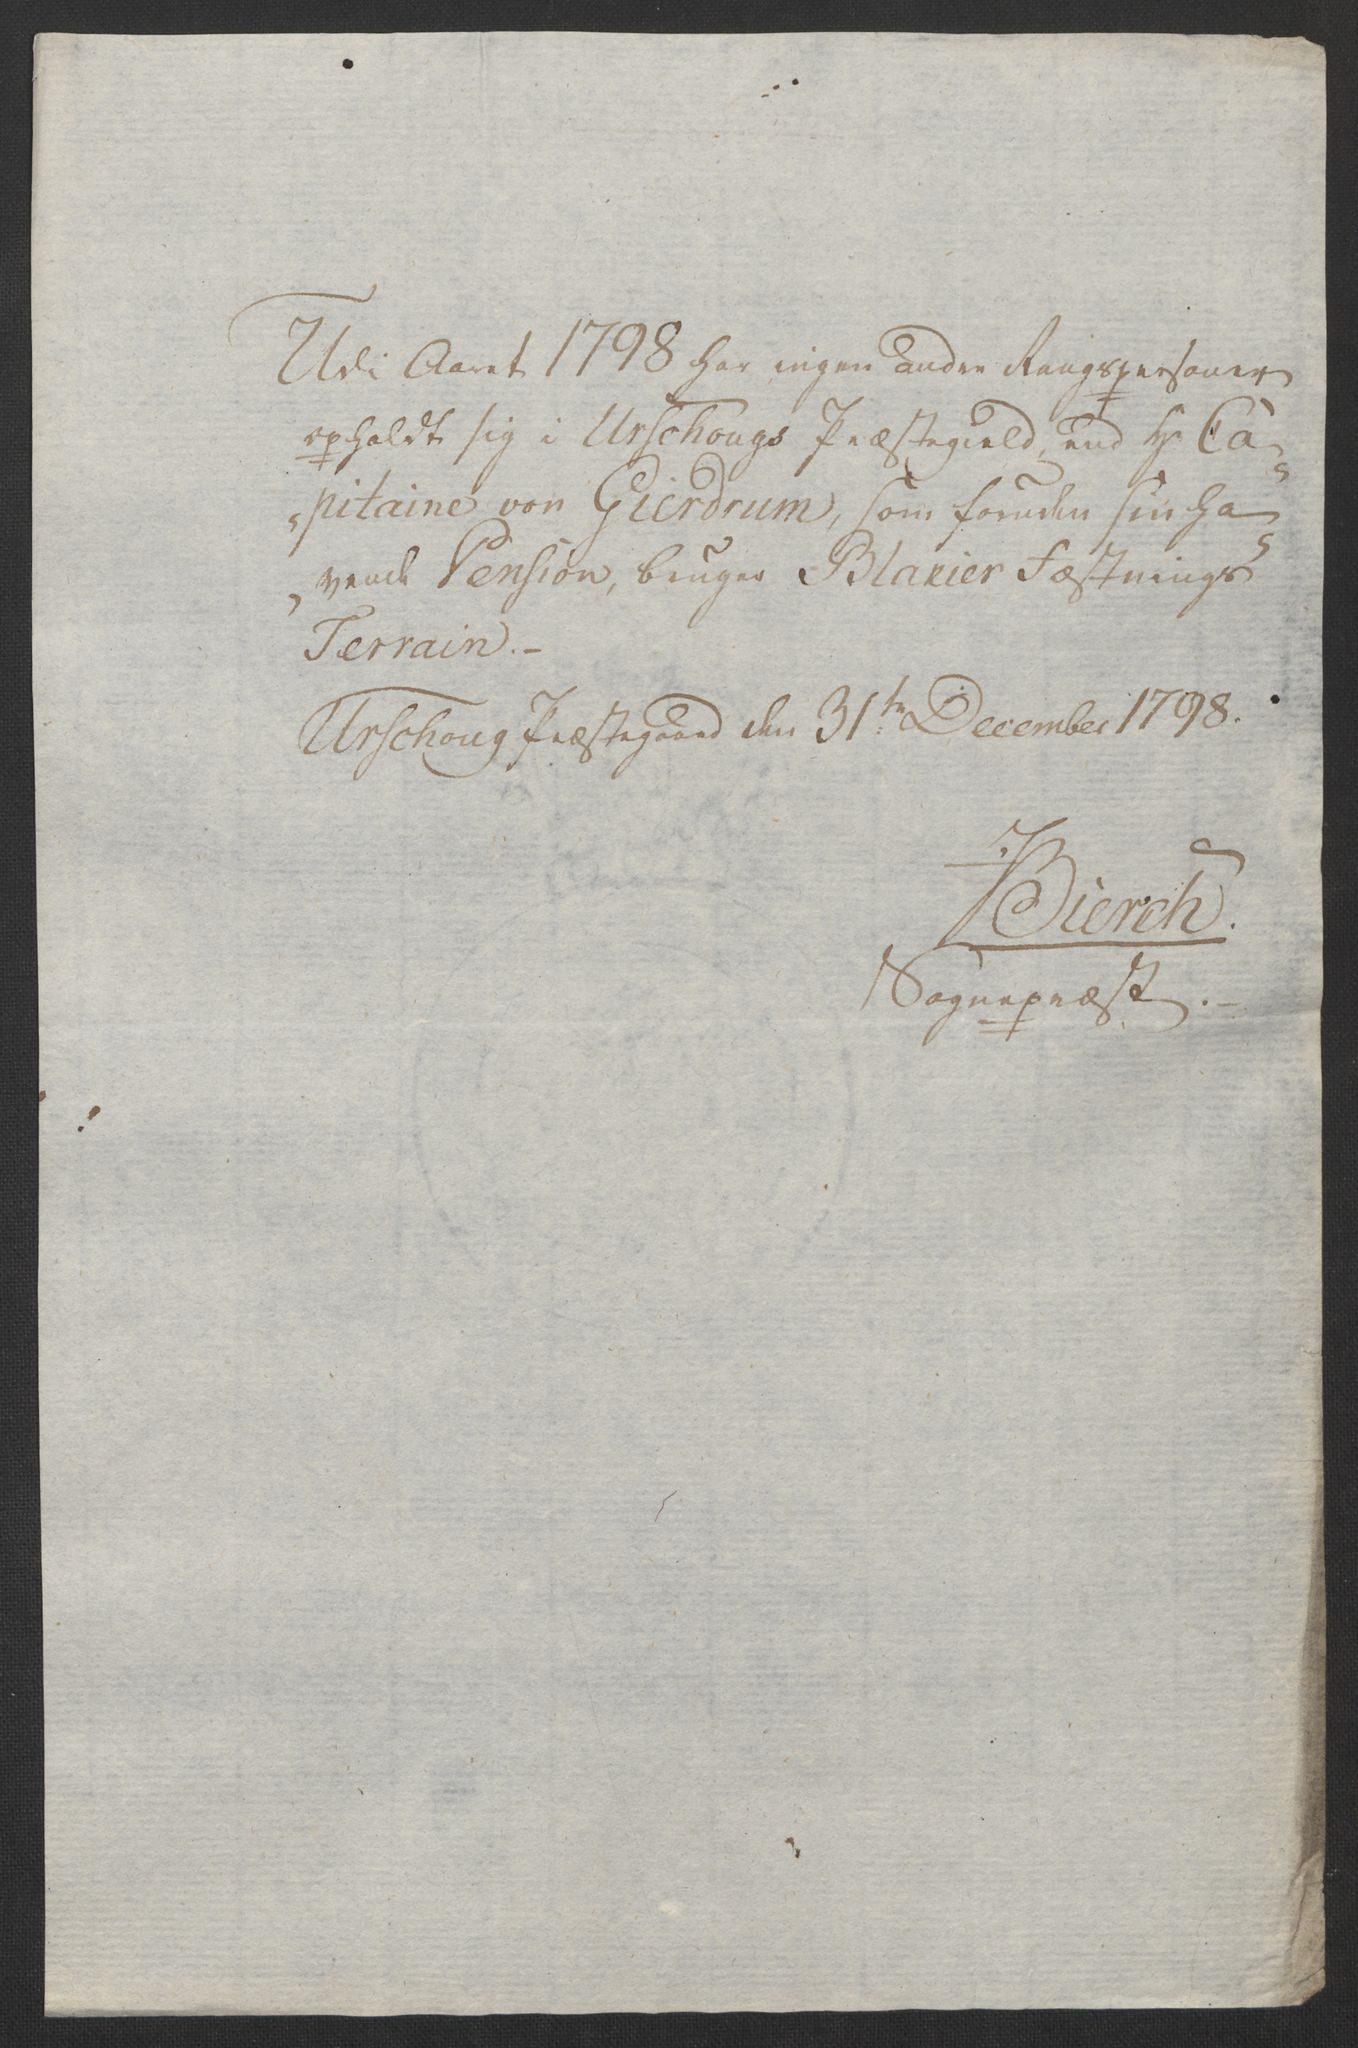 Udi Aaret 1798 har ingen anden Rangspersoner
opholdt sig i Urschougs Præstegield, end Hr Ca-
pitaine von Gierdrum, som foruden sin ha-
vende Pension, bruger Blakier Fæstnings
Terrain.-
Urschoug Præstegaard den 31te December 1798.
JBierch.
Sognepræst.-